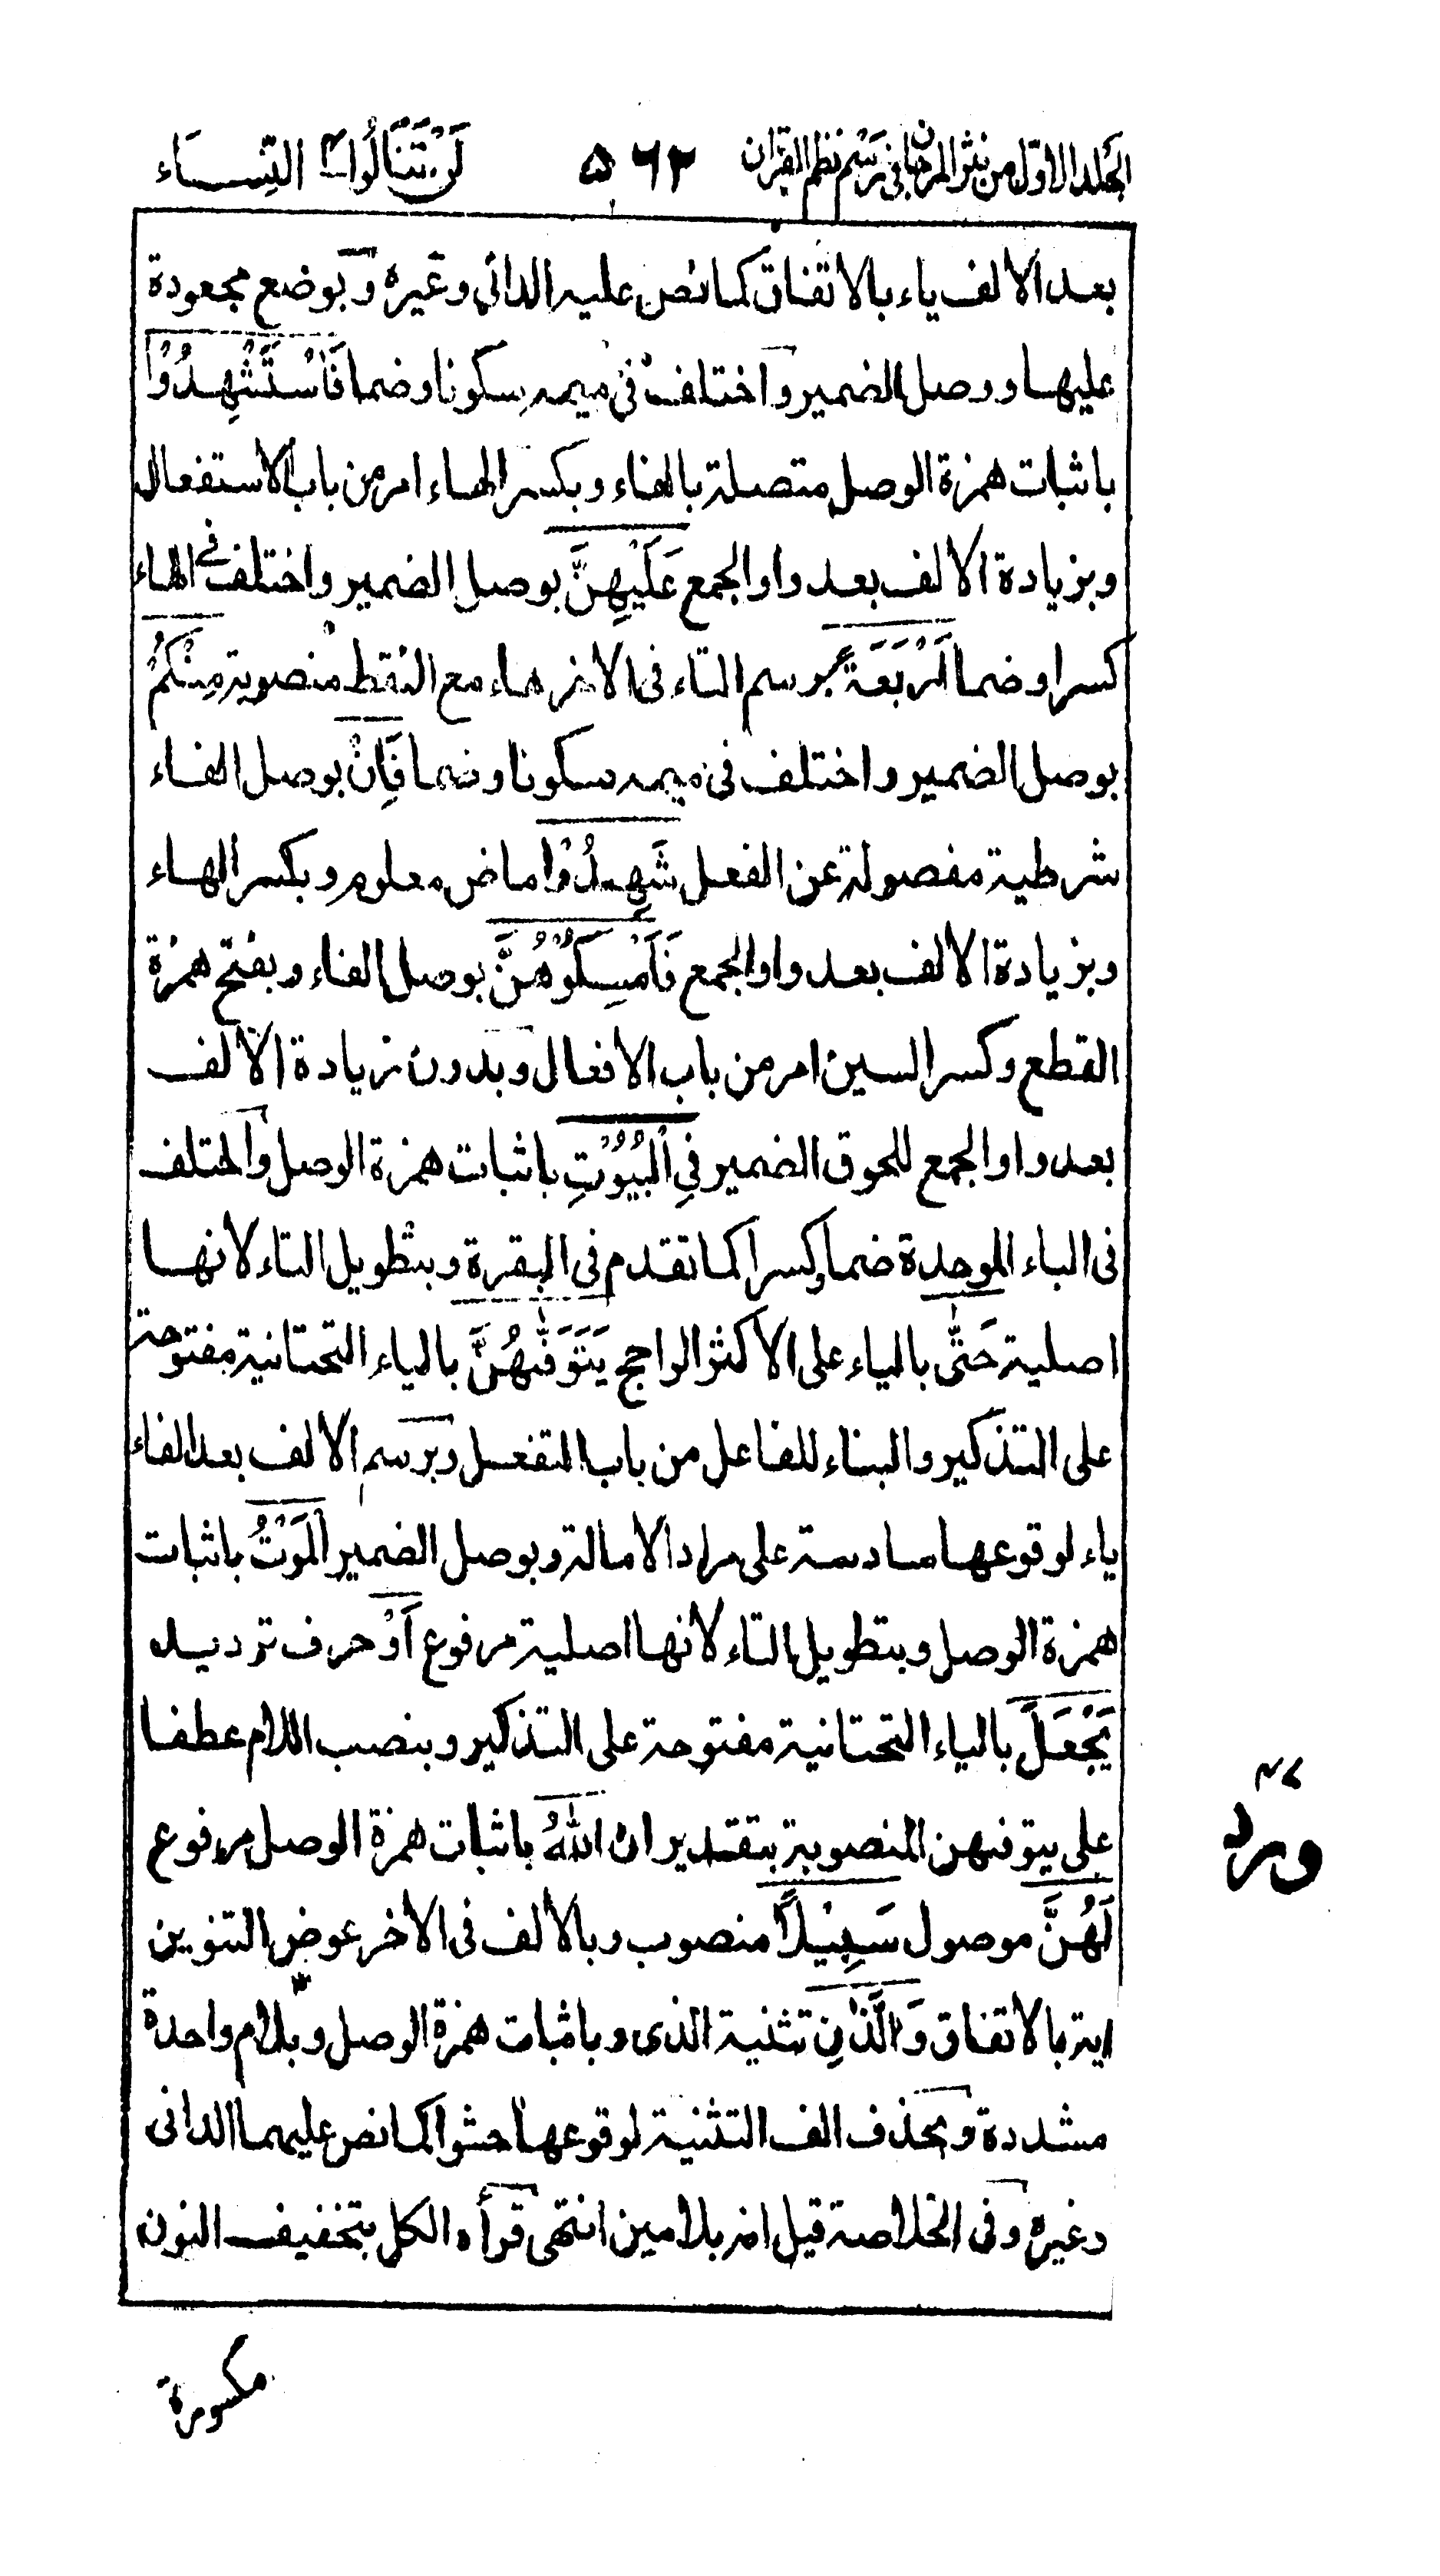 الجلد الاول من نثر المرجان فى رسم نظم القران ٥٦٢ لَنْ تَنَالُوا ٤ النِّسَاء
بعد الالف ياء بالاتفاق كما نص عليه الدانى وغيره وبوضع مجعودة
عليها ووصل الضمير واختلف فى ميمه سكونا وضما فَاسْتَشْهِدُوْا
باثبات همزة الوصل متصلة بالفاء وبكسر الهاء امر من باب الاستفعال
وبزيادة الالف بعد واو الجمع عَلَيْهِنَّ بوصل الضمير واختلف فى الهاء
كسرا وضما اَرْبَعَةً برسم التاء فى الاخر هاء مع النقط منصوبة مِنْكُمْ
بوصل الضمير واختلف فى ميمه سكونا وضما فَاِنْ بوصل الفاء
شرطية مفصولة عن الفعل شَهِدُوْا ماض معلوم وبكسر الهاء
وبزيادة الالف بعد واو الجمع فَاَمْسِكُوْهُنَّ بوصل الفاء وبفتح همزة
القطع وكسر السين امر من باب الافعال وبدون زيادة الالف
بعد واو الجمع للحوق الضمير فِى الْبُيُوْتِ باثبات همزة الوصل واختلف
فى الباء الموحدة ضما وكسرا كما تقدم فى البقرة وبتطويل التاء لانها
اصلية حَتّٰى بالياء على الاكثر الراجح يَتَوَفّٰىهُنَّ بالياء التحتانية مفتوحة
على التذكير والبناء للفاعل من باب التفعل وبرسم الالف بعد الفاء
ياء لوقوعها سادسة على مراد الامالة وبوصل الضمير الْمَوْتُ باثبات
همزة الوصل وبتطويل التاء لانها اصلية مرفوع اَوْ حرف ترديد
يَجْعَلَ بالياء التحتانية مفتوحة على التذكير وبنصب اللام عطفا
على يتوفىهن المنصوبة بتقدير ان اللّٰهُ باثبات همزة الوصل مرفوع
لَهُنَّ موصول سَبِيْلًا منصوب وبالالف فى الاخر عوض التنوين
اية بالاتفاق وَالَّذٰنِ تثنية الذى وباثبات همزة الوصل وبلام واحدة
مشددة وبحذف الف التثنية لوقوعها حشوا كما نص عليهما الدانى
وغيره وفى الخلاصة قيل انه بلامين انتهى قرأه الكل بتخفيف النون
مكسورة